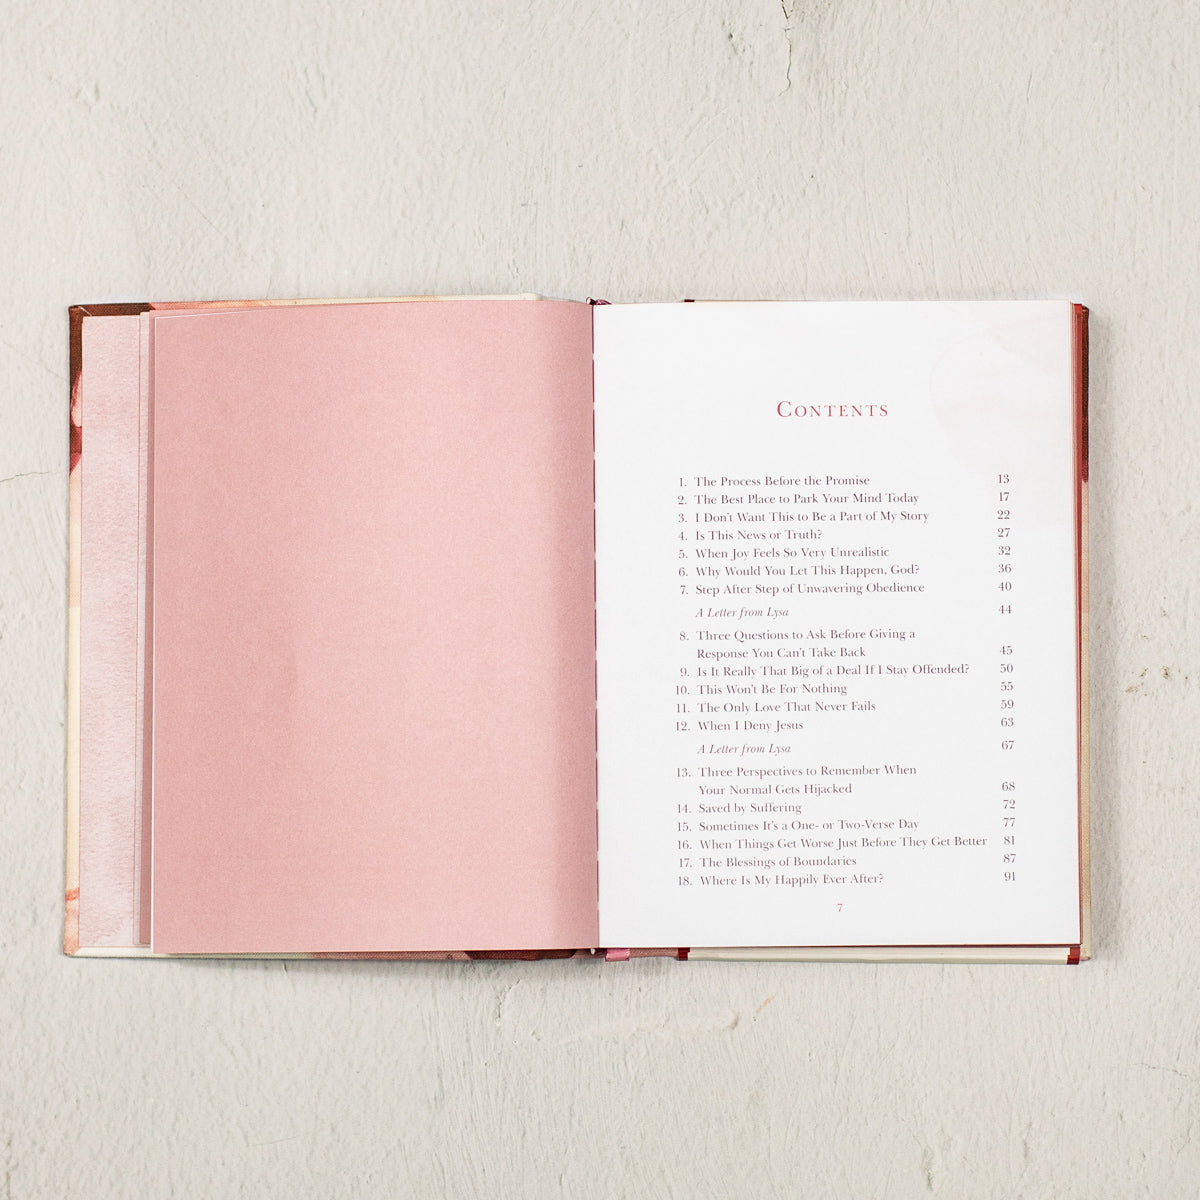 Contents
1. The Process Before the Promise 13
2. The Best Place to Park Your Mind Today 17
3. I Don't Want This to Be a Part of My Story 22
4. Is This News or Truth? 27
5. When Joy Feels So Very Unrealistic 32
6. Why Would You Let This Happen, God? 36
7. Step After Step of Unwavering Obedience 40
A Letter from Lysa 44
8. Three Questions to Ask Before Giving a
Response You Can't Take Back 45
9. Is It Really That Big of a Deal If I Stay Offended? 50
10. This Won't Be For Nothing 55
11. The Only Love That Never Fails 59
12. When I Deny Jesus 63
A Letter from Lysa 67
13. Three Perspectives to Remember When
Your Normal Gets Hijacked 68
14. Saved by Suffering 72
15. Sometimes It's a One- or Two-Verse Day 77
16. When Things Get Worse Just Before They Get Better 81
17. The Blessings of Boundaries 87
18. Where Is My Happily Ever After? 91
7